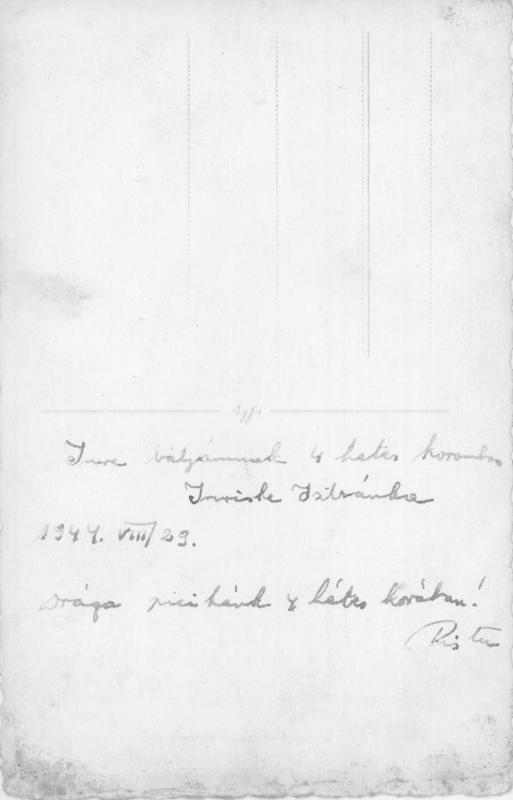 Imre bátyámnak 4 hetes koromban
Imriske Istvánka
1944. VIII/29.
Drága picikénk 4 hetes korában!
Pistu